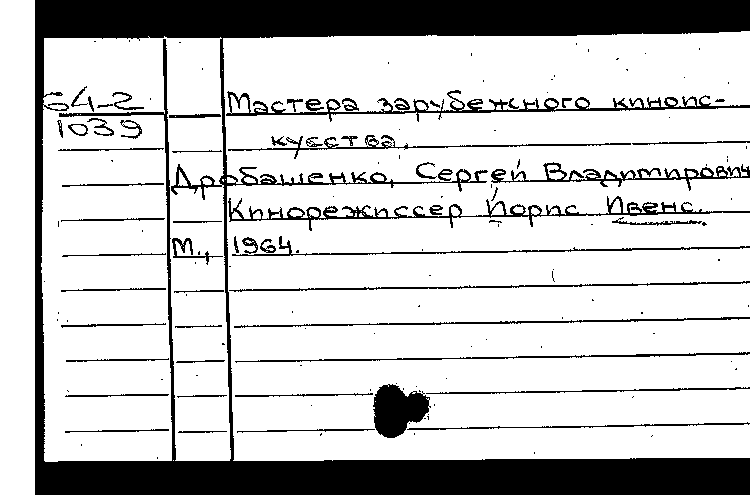 64-2
1039
Мастера зарубежного киноис-
кусства.
Дробашенко, Сергей Владимирович
Кинорежиссер Йорис Ивенс.
М., 1964.